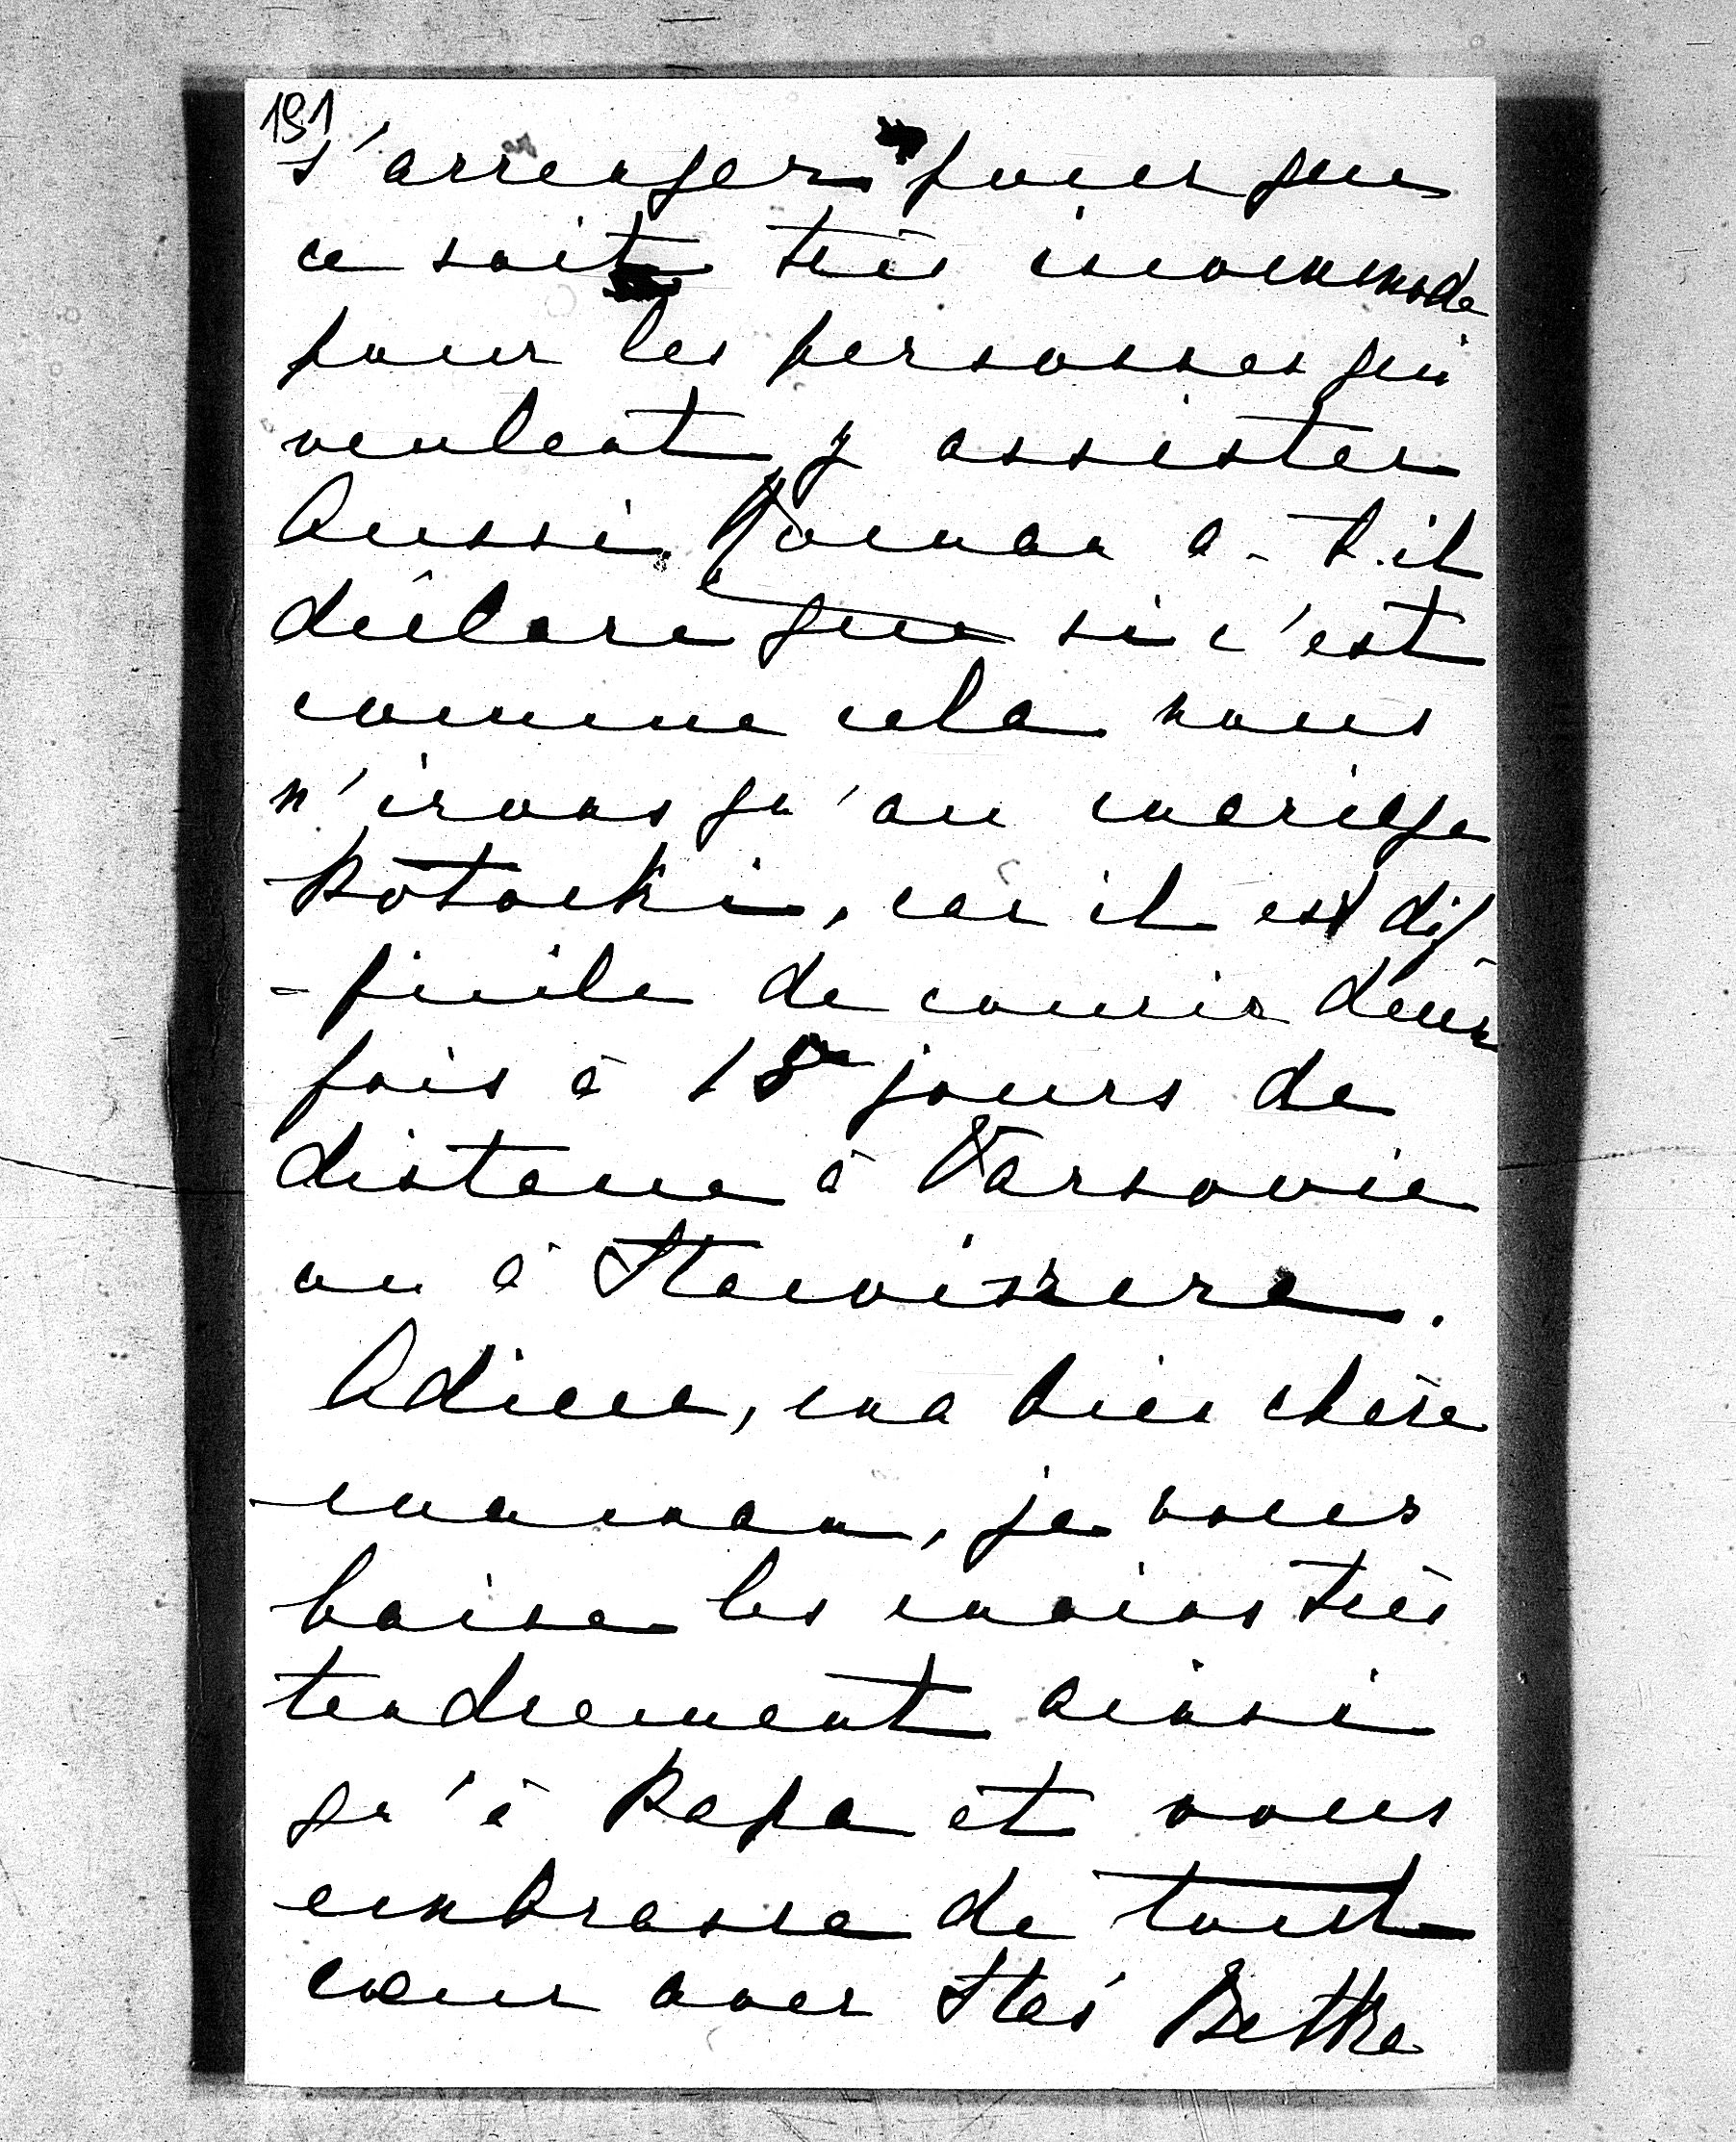 191
s'arranger pour que
ce soit très incommode
pour les personnes qui
veulent y assister
Aussi Roman a-t-il
déclaré que si c'est
comme cela nous
n'irons qu'au mariage
Potocki, car il est dif
-ficile de courir deux
fois à 15 jours de
distance à Varsovie
ou à
Adieu, ma bien chère
maman, je vous
baise les mains très
tendrement ainsi
qu'à Papa et vous
embrasse de tout
cœur avec Staś Bettka